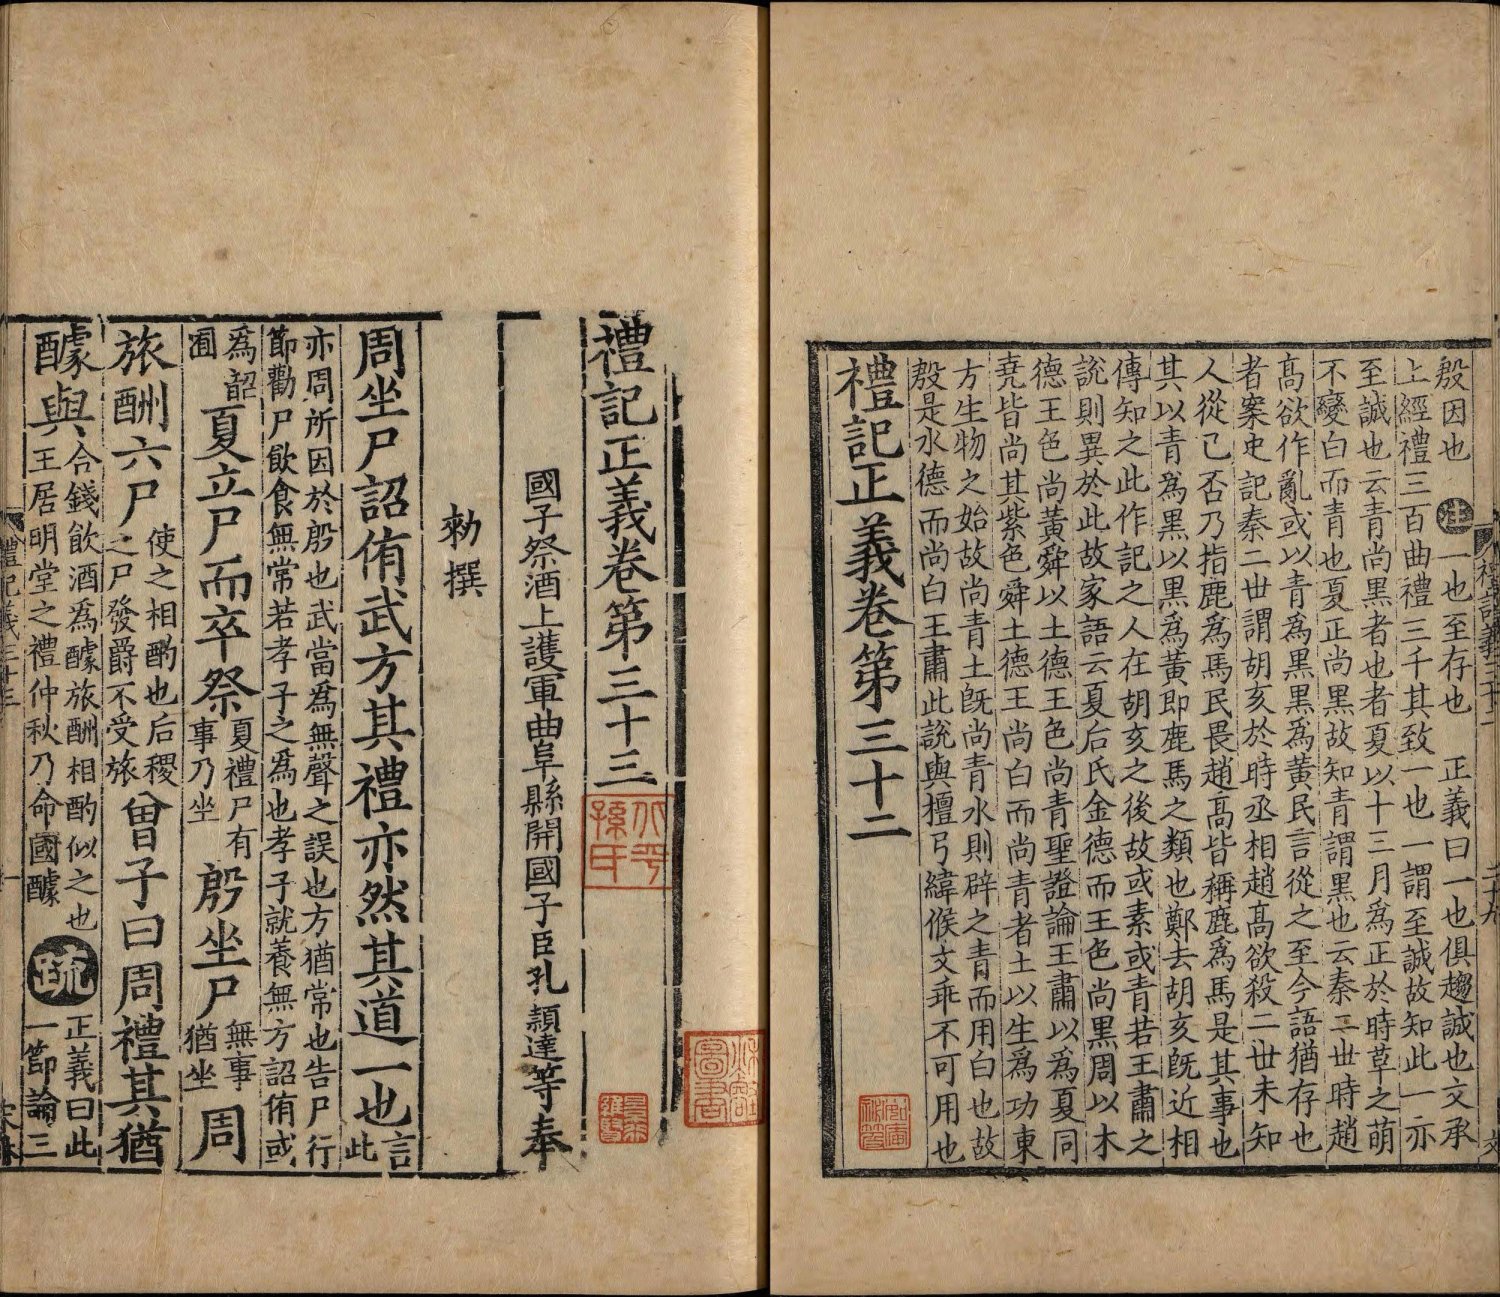 殷因也 注 一也至存也 正義曰一也俱趨誠也文承
上經禮三百曲禮三千其致一也一謂至誠故知此一亦
至誠也云青尚黑者也者夏以十三月為正於時草之萌
不變白而青也夏正尚黑故知青謂黑也云秦二世時趙
髙欲作亂或以青為黑黑為黃民言從之至今語猶存也
者案史記秦二世謂胡亥於時丞相趙髙欲殺二世未知
人從己否乃指鹿為馬民畏趙髙皆稱鹿為馬是其事也
其以青為黑以黑為黃即鹿馬之類也鄭去胡亥旣近相
傳知之此作記之人在胡亥之後故或素或青若王肅之
說則異於此故家語云夏后氏金德而王色尚黑周以木
德王色尚黃舜以土德王色尚青聖證論王肅以為夏同
堯皆尚其紫色舜土德王尚白而尚青者土以生為功東
方生物之始故尚青土旣尚青水則辟之青而用白也故
殷是水德而尚白王肅此說與檀弓緯候文乖不可用也
禮記正義卷第三十二
禮記正義卷第三十三
國子祭酒上護軍曲阜縣開國子臣孔穎達等奉
勑撰
周坐尸詔侑武方其禮亦然其道一也 言此
亦周所因於殷也武當為無聲之誤也方猶常也告尸行
節勸尸飲食無常若孝子之為也孝子就養無方詔侑或
為詔圃 夏立尸而卒祭 夏禮尸有事乃坐 殷坐尸 無事猶坐 周
旅酬六尸 使之相酌也后稷之尸發爵不受旅 曾子曰周禮其猶
醵與 合錢飲酒為醵旅酬相酌似之也王居明堂之禮仲秋乃命國醵 疏 正義曰此一節論三